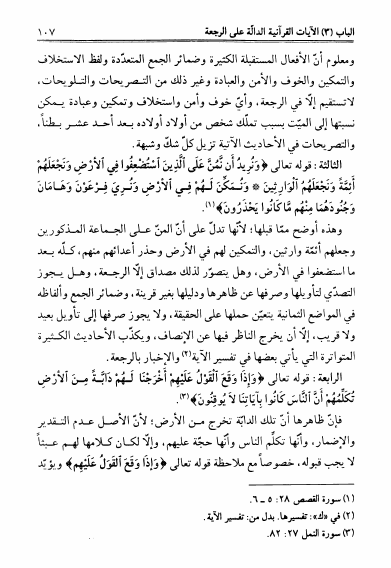 الباب (٣) الآيات القرآنية الدالّة على الرجعة ١٠٧
ومعلوم أنّ الأفعال المستقبلة الكثيرة وضمائر الجمع المتعدّدة ولفظ الاستخلاف
والتمكين والخوف والأمن والعبادة وغير ذلك من التصريحات والتلويحات،
لاتستقيم إلّا في الرجعة، وأيّ خوف وأمن واستخلاف وتمكين وعبادة يمكن
نسبتها إلى الميّت بسبب تملّك شخص من أولاد أولاده بعد أحد عشر بطناً،
والتصريحات في الأحاديث الآتية تزيل كلّ شكّ وشبهة.
الثالثة: قوله تعالى ﴿وَنُرِيدُ أَن نَّمُنَّ عَلَى الَّذِينَ اسْتُضْعِفُوا فِي الْأَرْضِ وَنَجْعَلَهُمْ
أَئِمَّةً وَنَجْعَلَهُمُ الْوَارِثِينَ * وَنُمَكِّنَ لَهُمْ فِي الْأَرْضِ وَنُرِيَ فِرْعَوْنَ وَهَامَانَ
وَجُنُودَهُمَا مِنْهُم مَّا كَانُوا يَحْذَرُونَ﴾(١).
وهذه أوضح ممّا قبلها؛ لأنّها تدلّ على أنّ المنّ على الجماعة المذكورين
وجعلهم أئمّة وارثين، والتمكين لهم في الأرض وحذر أعدائهم منهم، كلّه بعد
ما استضعفوا في الأرض، وهل يتصوّر لذلك مصداق إلّا الرجعة، وهل يجوز
التصدّي لتأويلها وصرفها عن ظاهرها ودليلها بغير قرينة، وضمائر الجمع وألفاظه
في المواضع الثمانية يتعيّن حملها على الحقيقة، ولا يجوز صرفها إلى تأويل بعيد
ولا قريب، إلّا أن يخرج الناظر فيها عن الإنصاف، ويكذّب الأحاديث الكثيرة
المتواترة التي يأتي بعضها في تفسير الآية(٢) والإخبار بالرجعة.
الرابعة: قوله تعالى ﴿وَإِذَا وَقَعَ الْقَوْلُ عَلَيْهِمْ أَخْرَجْنَا لَهُمْ دَابَّةً مِنَ الْأَرْضِ
تُكَلِّمُهُمْ أَنَّ النَّاسَ كَانُوا بِآيَاتِنَا لَا يُوقِنُونَ﴾(٣).
فإنّ ظاهرها أنّ تلك الدابّة تخرج من الأرض؛ لأنّ الأصل عدم التقدير
والإضمار، وأنّها تكلّم الناس وأنّها حجّة عليهم، وإلّا لكان كلامها لهم عبثاً
لا يجب قبوله، خصوصاً مع ملاحظة قوله تعالى ﴿وَإِذَا وَقَعَ الْقَوْلُ عَلَيْهِم﴾ ويؤيّد
(١) سورة القصص ٢٨: ٥ ـ ٦.
(٢) في «ك»: تفسيرها. بدل من: تفسير الآية.
(٣) سورة النمل ٢٧: ٨٢.